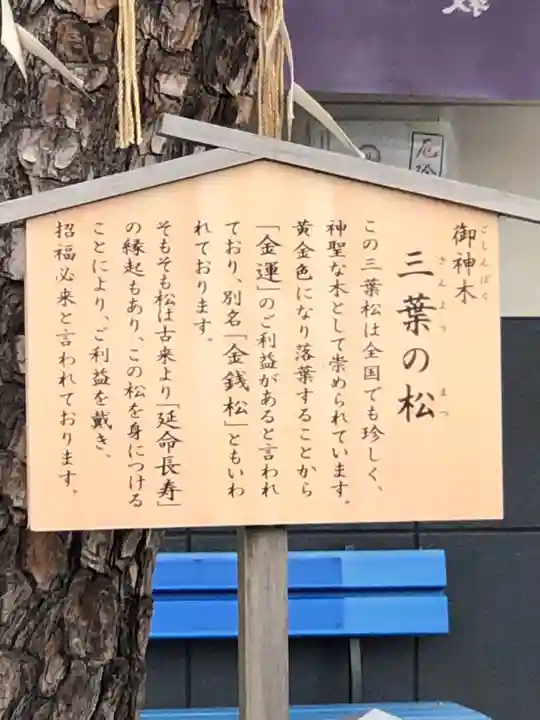 御神木
ごしんぼく
三葉の松
さんよう まつ
この三葉松は全国でも珍しく、
神聖な木として崇められています。
黄金色になり落葉することから
「金運」のご利益があると言われ
ており、別名「金銭松」ともいわ
れております。
そもそも松は古来より「延命長寿」
の縁起もあり、この松を身につける
ことにより、ご利益を戴き、
招福必来と言われております。
厄